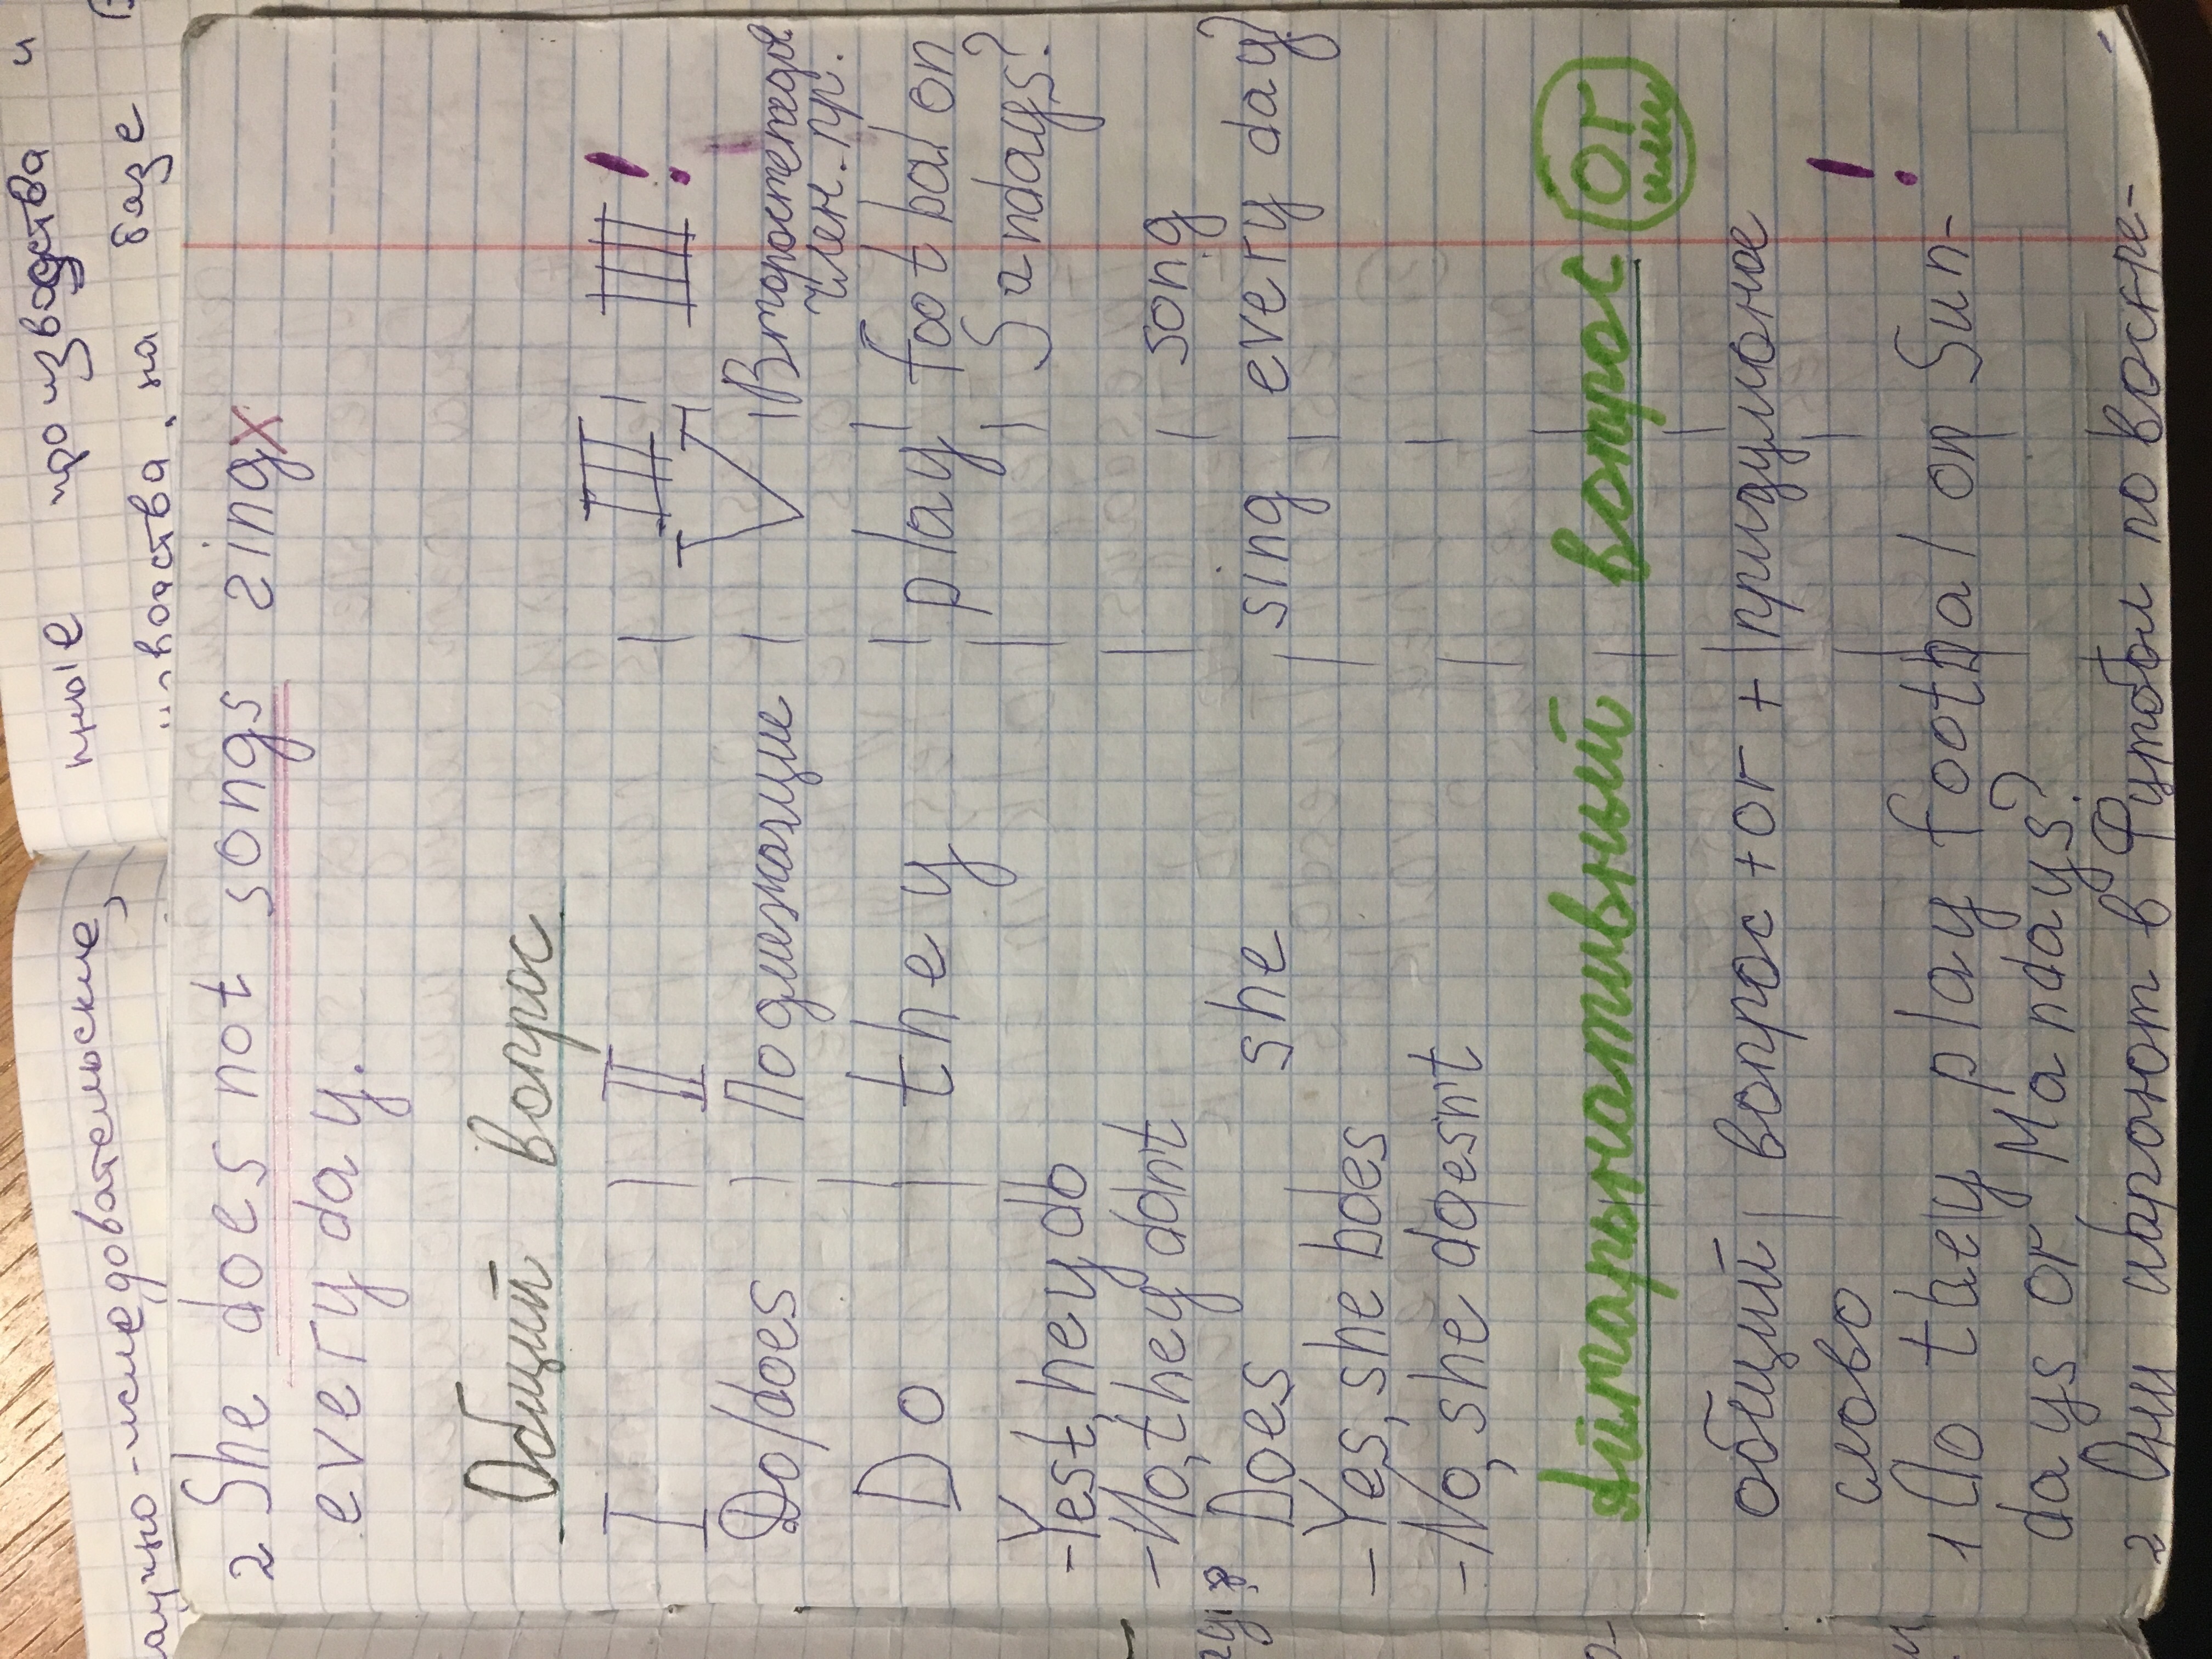 научно-исследовательские,
ные производства и
на базе
2 She does not songs singx
every day.
Общий вопрос
I II III IIII !
Do/does Подлежащие V Второстепедов
член. пр.
Do they play footbal on
Sundays?
-Yest,hey do
-No,they don't song
Does she sing every day?
-Yes,she boes
-No,she doesn't
Альтарнативный вопрос or
или
общий вопрос +or + придумоное
слово !
1 Do they play footbal on Sun-
days or Mandays?
2 Они играют в Футбол по воскре-